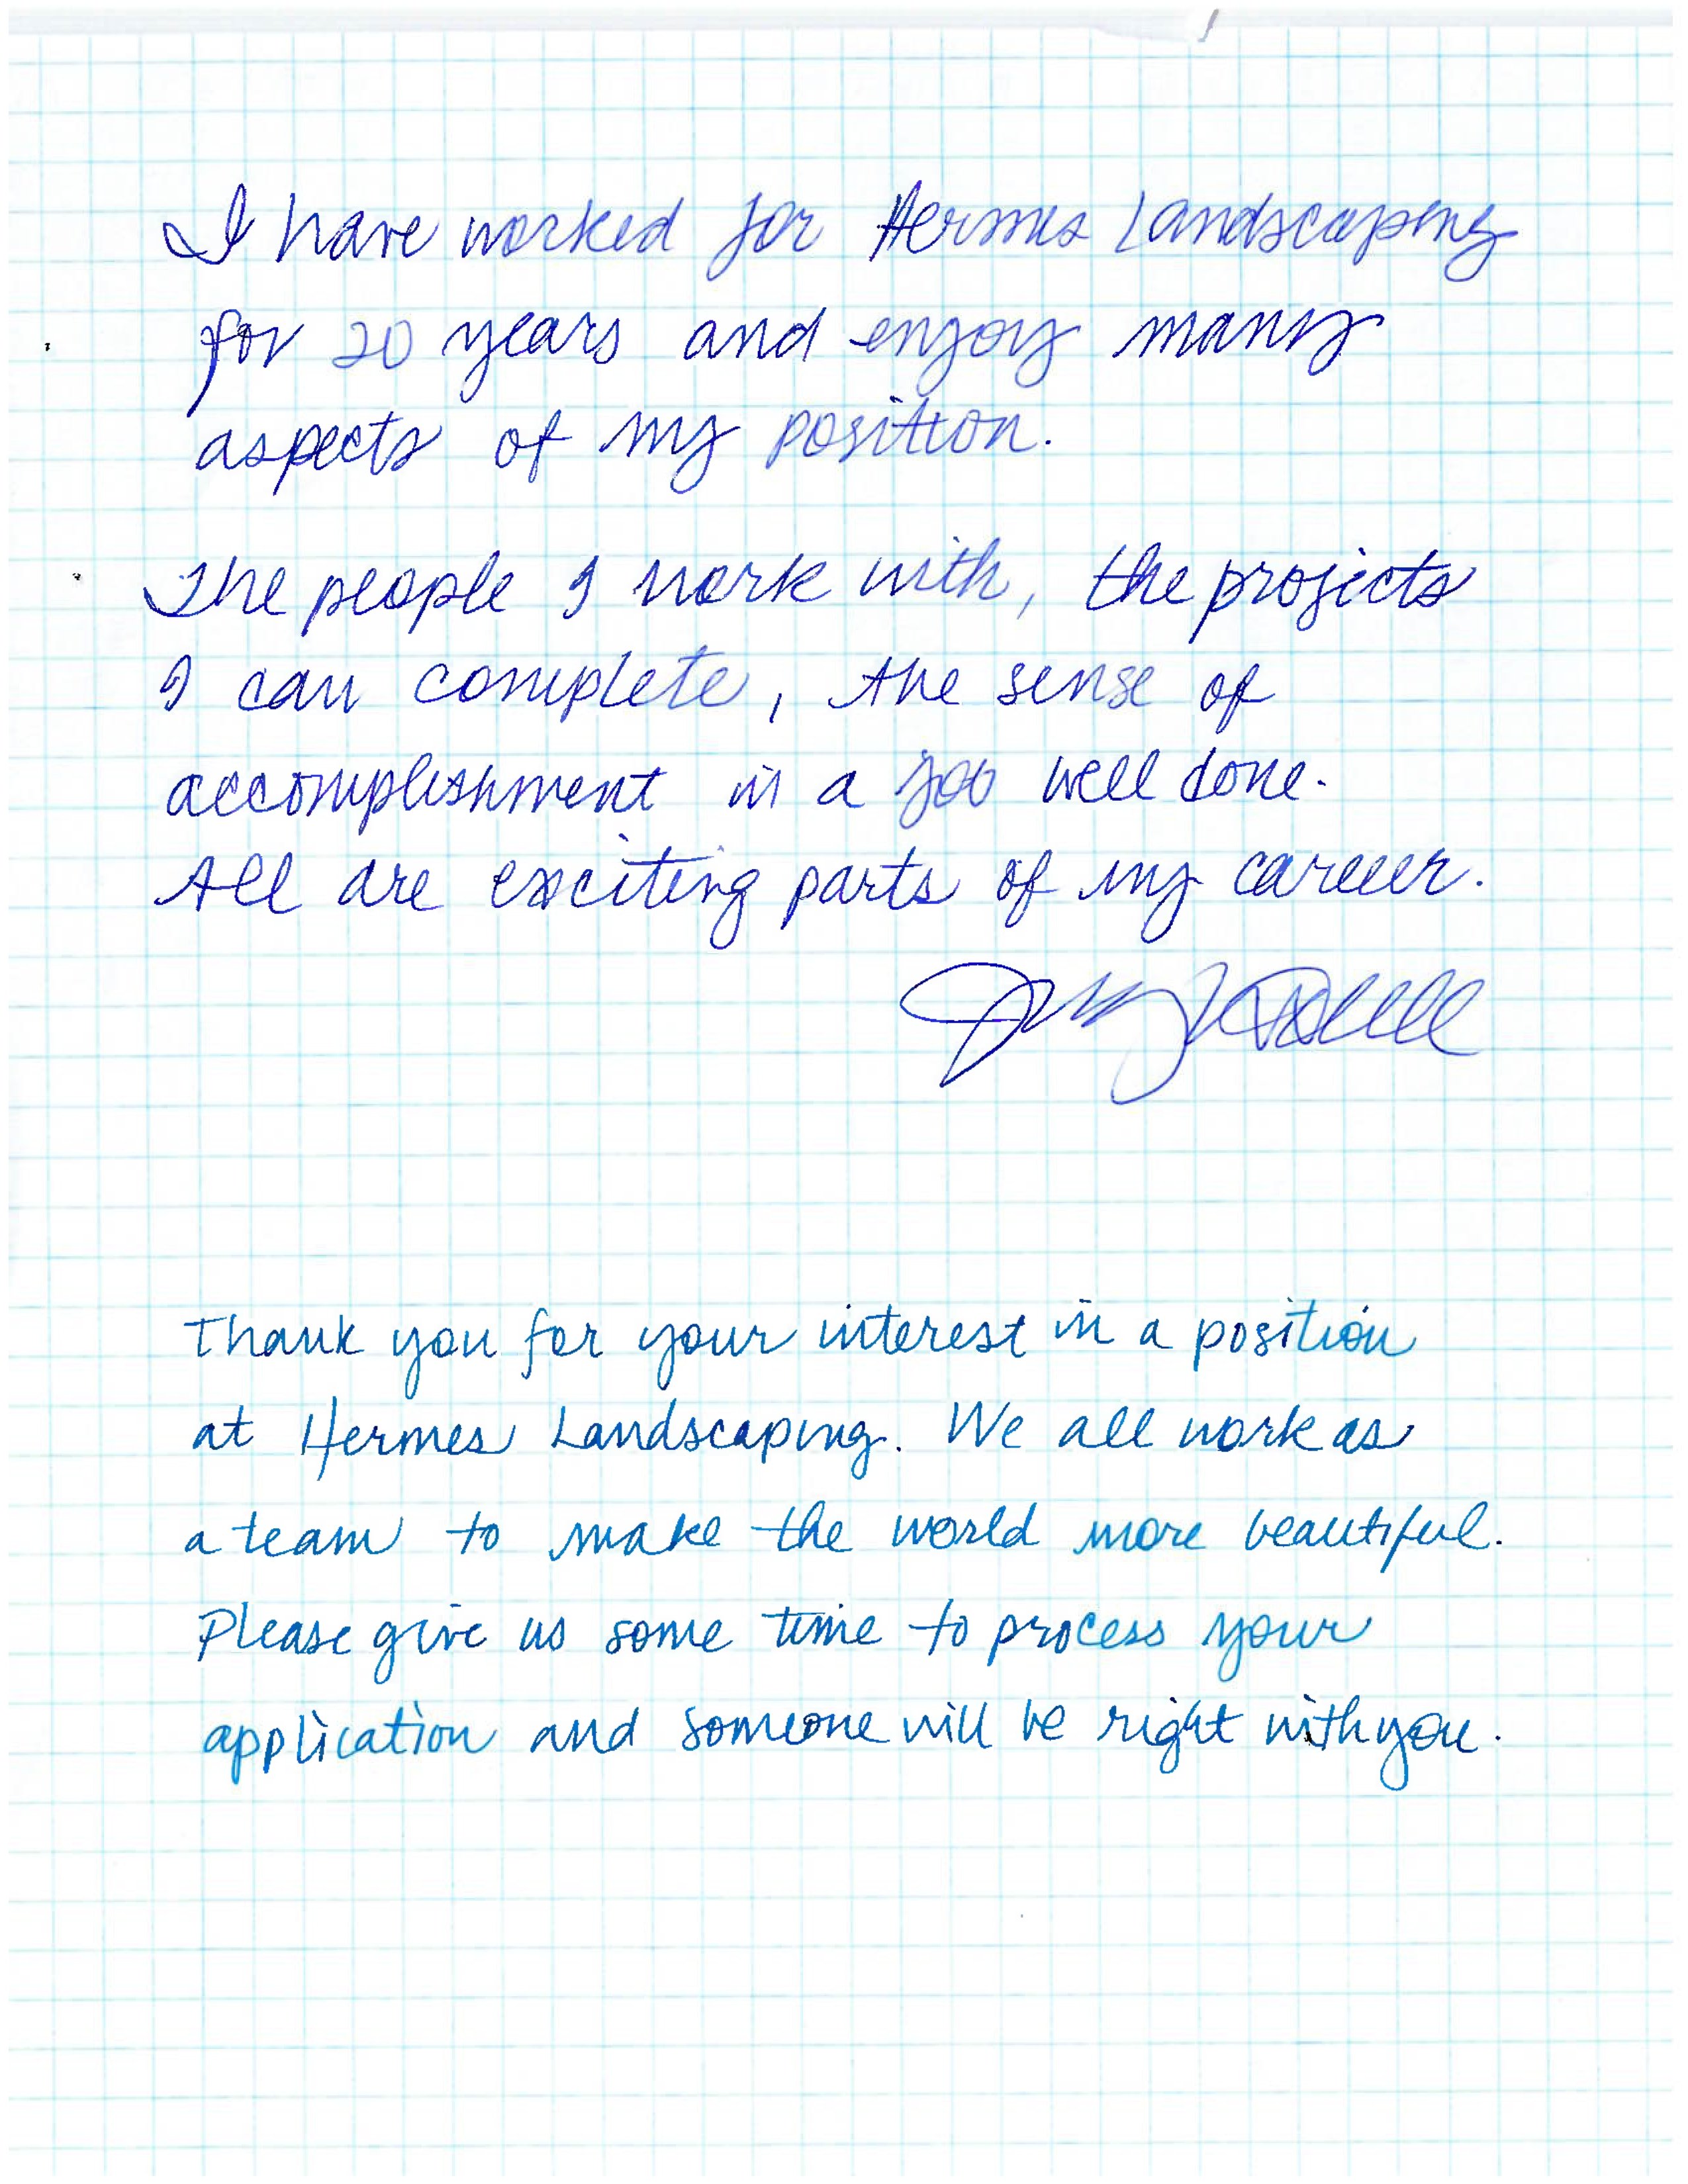 I have worked for Hermes Landscaping
for 20 years and enjoy many
aspects of my position.
The people I work with, the projects
I can complete, the sense of
accomplishment in a job well done.
All are exciting parts of my career.
Thank you for your interest in a position
at Hermes Landscaping. We all work as
a team to make the world more beautiful.
Please give us some time to process your
application and someone will be right with you.